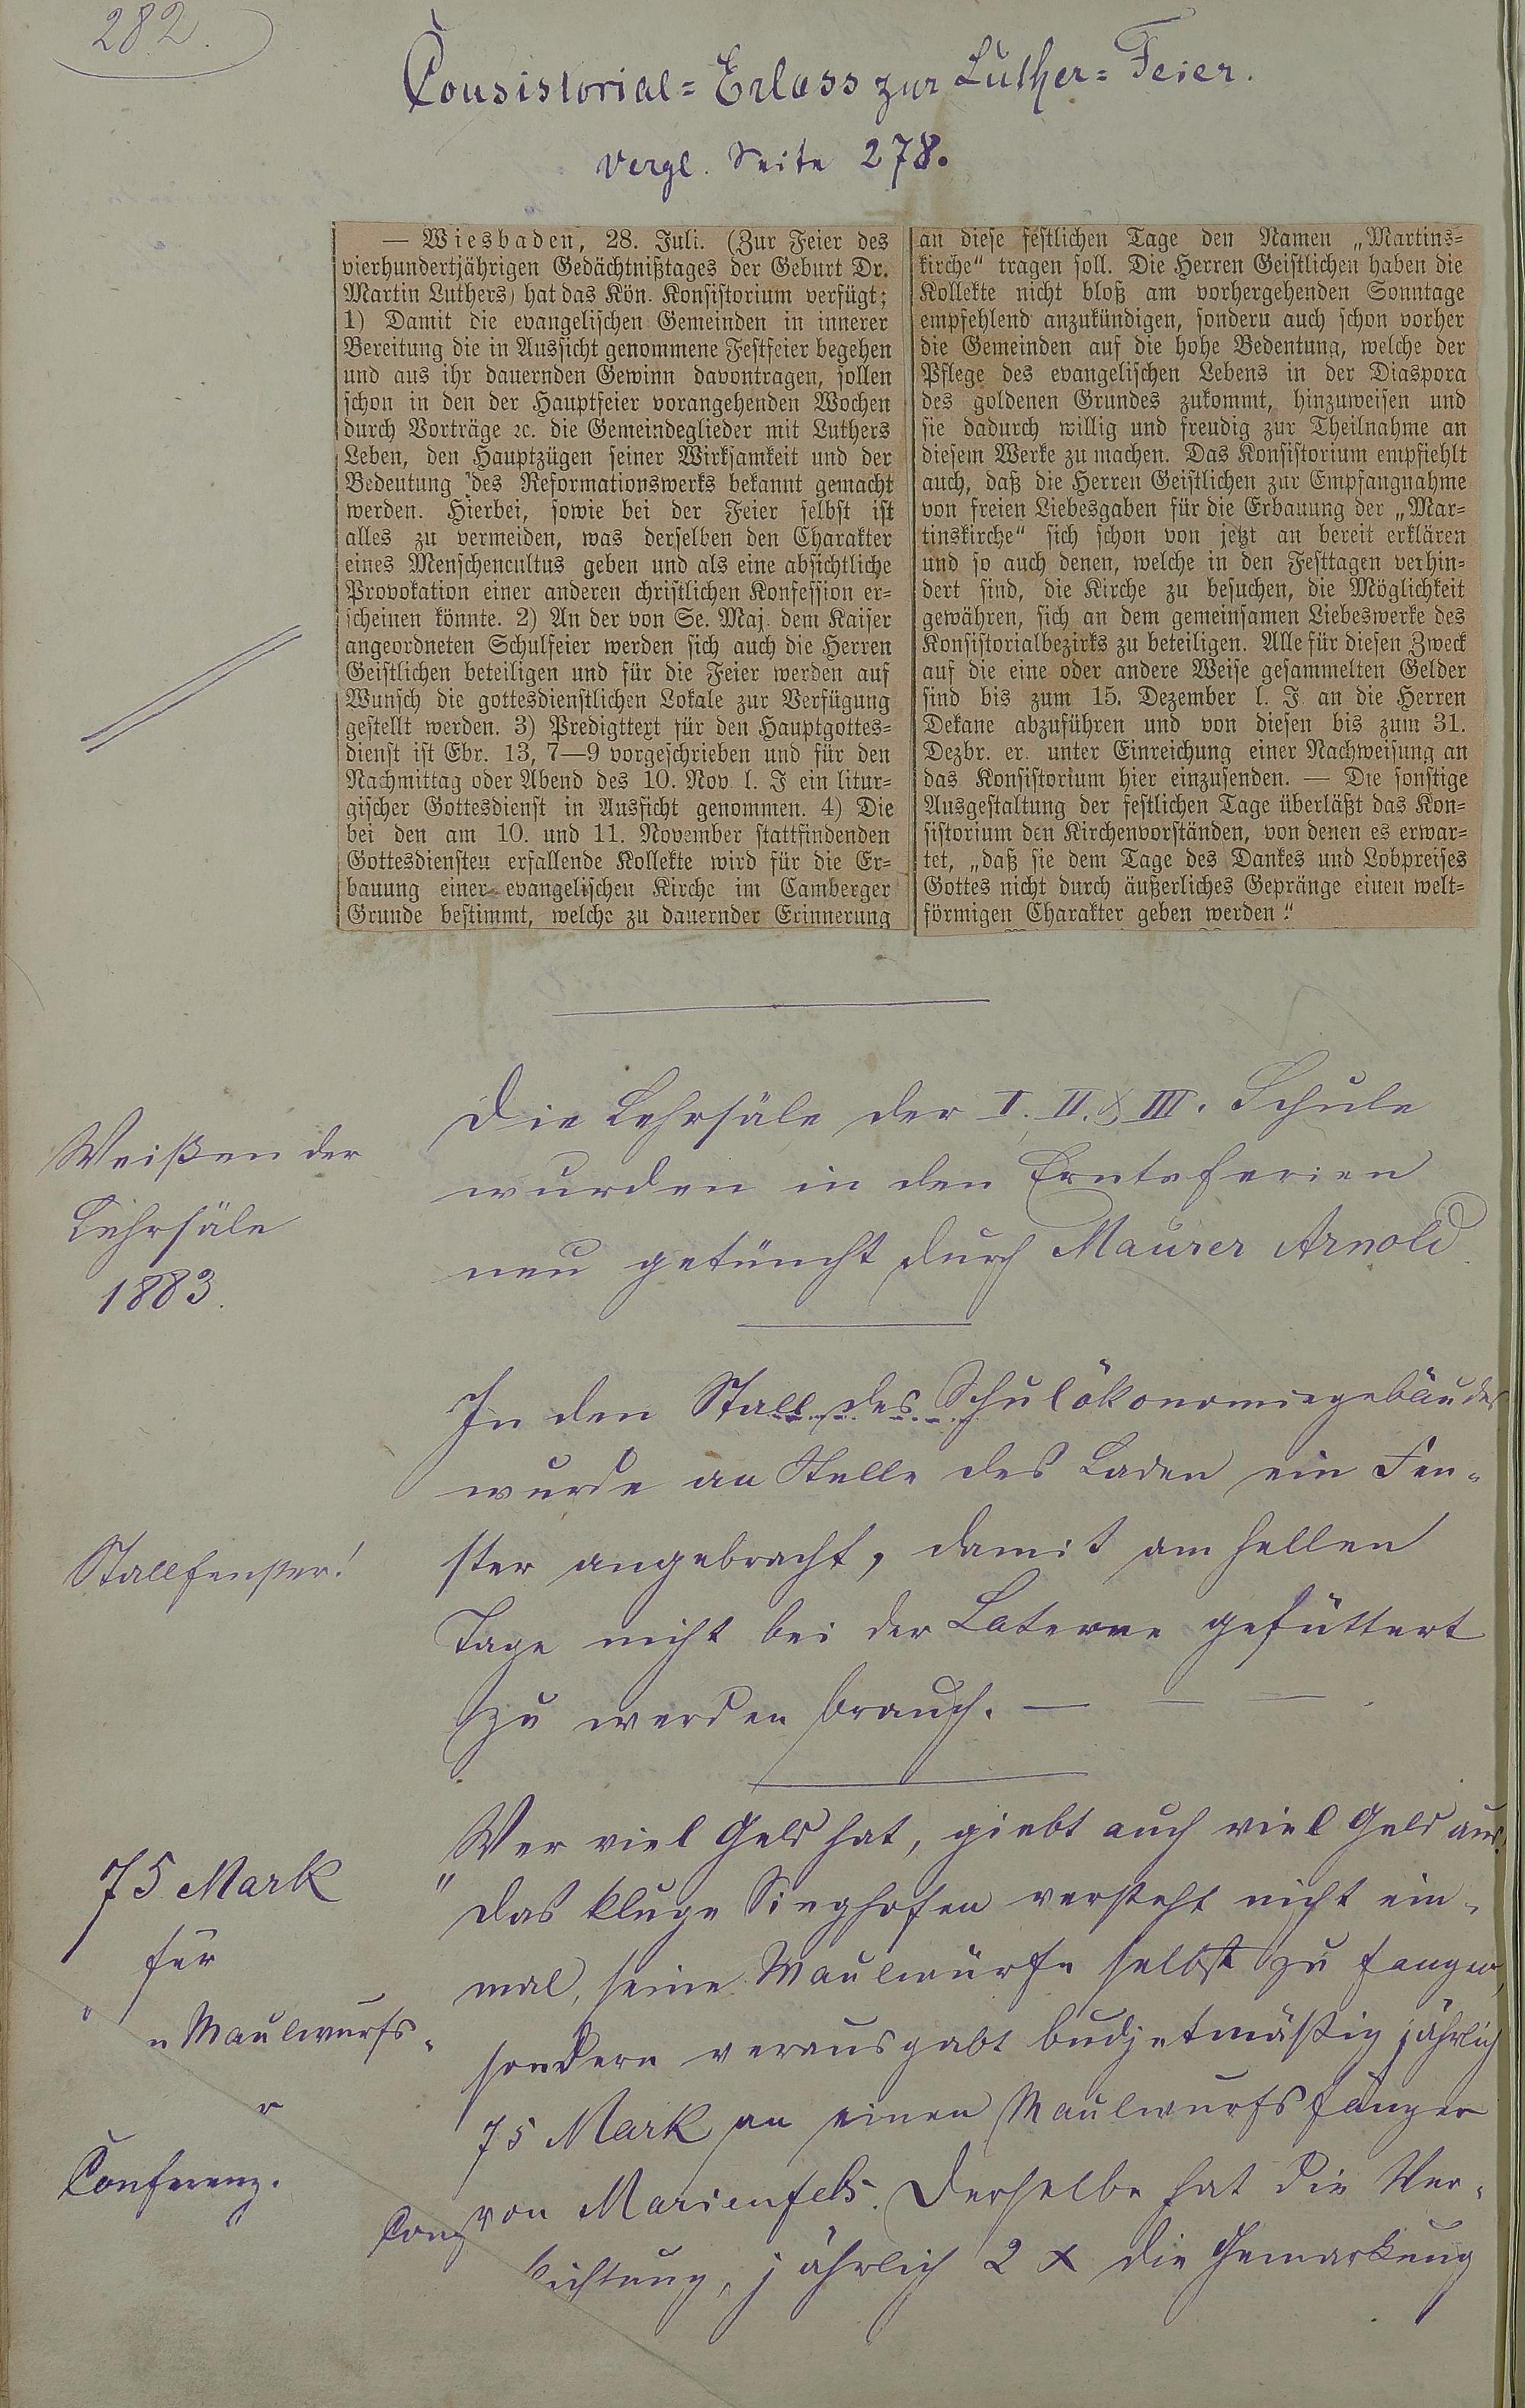 282.
Consistorial=Erlass zur Luther=Feier.
vergl. Seite 278.
— Wiesbaden, 28. Juli. (Zur Feier des
vierhundertjährigen Gedächtnißtages der Geburt Dr.
Martin Luthers) hat das Kön. Konsistorium verfügt;
1) Damit die evangelischen Gemeinden in innerer
Bereitung die in Aussicht genommene Festfeier begehen
und aus ihr dauernden Gewinn davontragen, sollen
schon in den der Hauptfeier vorangehenden Wochen
durch Vorträge ꝛc. die Gemeindeglieder mit Luthers
Leben, den Hauptzügen seiner Wirksamkeit und der
Bedeutung des Reformationswerks bekannt gemacht
werden. Hierbei, sowie bei der Feier selbst ist
alles zu vermeiden, was derselben den Charakter
eines Menschencultus geben und als eine absichtliche
Provokation einer anderen christlichen Konfession er=
scheinen könnte. 2) An der von Se. Maj. dem Kaiser
angeordneten Schulfeier werden sich auch die Herren
Geistlichen beteiligen und für die Feier werden auf
Wunsch die gottesdienstlichen Lokale zur Verfügung
gestellt werden. 3) Predigttext für den Hauptgottes=
dienst ist Ebr. 13, 7—9 vorgeschrieben und für den
Nachmittag oder Abend des 10. Nov l. J ein litur=
gischer Gottesdienst in Aussicht genommen. 4) Die
bei den am 10. und 11. November stattfindenden
Gottesdiensten erfallende Kollekte wird für die Er=
bauung einer evangelischen Kirche im Camberger
Grunde bestimmt, welche zu dauernder Erinnerung
an diese festlichen Tage den Namen „Martins=
kirche“ tragen soll. Die Herren Geistlichen haben die
Kollekte nicht bloß am vorhergehenden Sonntage
empfehlend anzukündigen, sondern auch schon vorher
die Gemeinden auf die hohe Bedeutung, welche der
Pflege des evangelischen Lebens in der Diaspora
des goldenen Grundes zukommt, hinzuweisen und
sie dadurch willig und freudig zur Theilnahme an
diesem Werke zu machen. Das Konsistorium empfiehlt
auch, daß die Herren Geistlichen zur Empfangnahme
von freien Liebesgaben für die Erbauung der „Mar=
tinskirche“ sich schon von jetzt an bereit erklären
und so auch denen, welche in den Festtagen verhin=
dert sind, die Kirche zu besuchen, die Möglichkeit
gewähren, sich an dem gemeinsamen Liebeswerke des
Konsistorialbezirks zu beteiligen. Alle für diesen Zweck
auf die eine oder andere Weise gesammelten Gelder
sind bis zum 15. Dezember l. J an die Herren
Dekane abzuführen und von diesen bis zum 31.
Dezbr. er. unter Einreichung einer Nachweisung an
das Konsistorium hier einzusenden. — Die sonstige
Ausgestaltung der festlichen Tage überläßt das Kon=
sistorium den Kirchenvorständen, von denen es erwar=
tet, „daß sie dem Tage des Dankes und Lobpreises
Gottes nicht durch äußerliches Gepränge einen welt=
förmigen Charakter geben werden.“
Weißen der
Lehrsäle
1883.
Die Lehrsäle der I. II. & III. Schule
wurden in den Ernteferien
neu getüncht durch Maurer Arnold.
Stallfenster!
In den Stall des Schulökonomiegebäudes
wurde an Stelle des Laden ein Fen=
ster angebracht, damit am hellen
Tage nicht bei der Laterne gefüttert
zu werden brauch. — — —
75 Mark
für
"Maulwurfs=
"
Conferenz.
"
Wer viel Geld hat, giebt auch viel Geld aus.
" Das kluge Singhofen versteht nicht ein=
mal, seine Maulwürfe selbst zu fangen,
sondern verausgabt budjetmäßig jährlich
75 Mark an einen Maulwurfsfänger
von Marienfels. Derselbe hat die Ver=
pflichtung, jährlich 2 x die Gemarkung